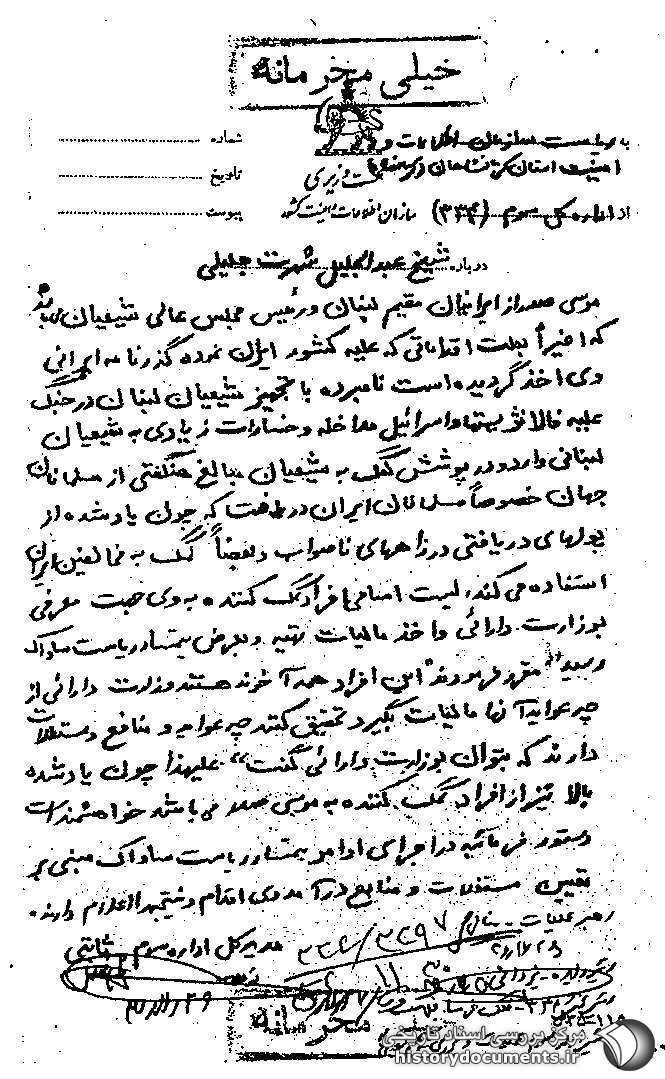 خیلی محرمانه
به ریاست سازمان اطلاعات و
امنیت استان کرمانشاهان
شماره
نخست وزیری
تاریخ
از اداره کل سوم (۳۳۴) سازمان اطلاعات و امنیت کشور
پیوست
درباره شیخ عبدالجلیل شهرت جلیلی
موسی صدر از ایرانیان مقیم لبنان و رئیس مجلس عالی شیعیان می باشد
که اخیراً بعلت اقداماتی که علیه کشور ایران نموده گذرنامه ایرانی
وی اخذ گردیده است نامبرده با تجهیز شیعیان لبنان در جنگ
علیه فالانژیستها و اسرائیل مداخله و خسارات زیادی به شیعیان
لبنانی وارد و در پوشش کمک به شیعیان مبالغ هنگفتی از مسلمانان
جهان خصوصاً مسلمانان ایران دریافت که چون یاد شده از
پولهای دریافتی در راههای ناصواب و بعضاً کمک به مخالفین ایران
استفاده می کند، لیست اسامی افراد کمک کننده به وی جهت معرفی
بوزارت دارائی و اخذ مالیات تهیه و بعرض تیمسار ریاست ساواک
رسید "مقرر فرمودند این افراد همه آخوند هستند وزارت دارائی از
چه عواید آنها مالیات بگیرد تحقیق کنند چه عواید و منافع و مستغلات
دارند که بتوان بوزارت دارائی گفت" علیهذا چون یاد شده
بالا نیز از افراد کمک کننده به موسی صدر می باشد خواهشمند است
دستور فرمائید در اجرای اوامر تیمسار ریاست ساواک مبنی بر
تعیین مستغلات و منابع درآمد وی اقدام و نتیجه را اعلام دارند.
رهبر عملیات
مدیر کل اداره سوم ثابتی
۳۳۴/۳۲۹۷
محرمانه
مرکز بررسی اسناد تاریخی
historydocuments.ir